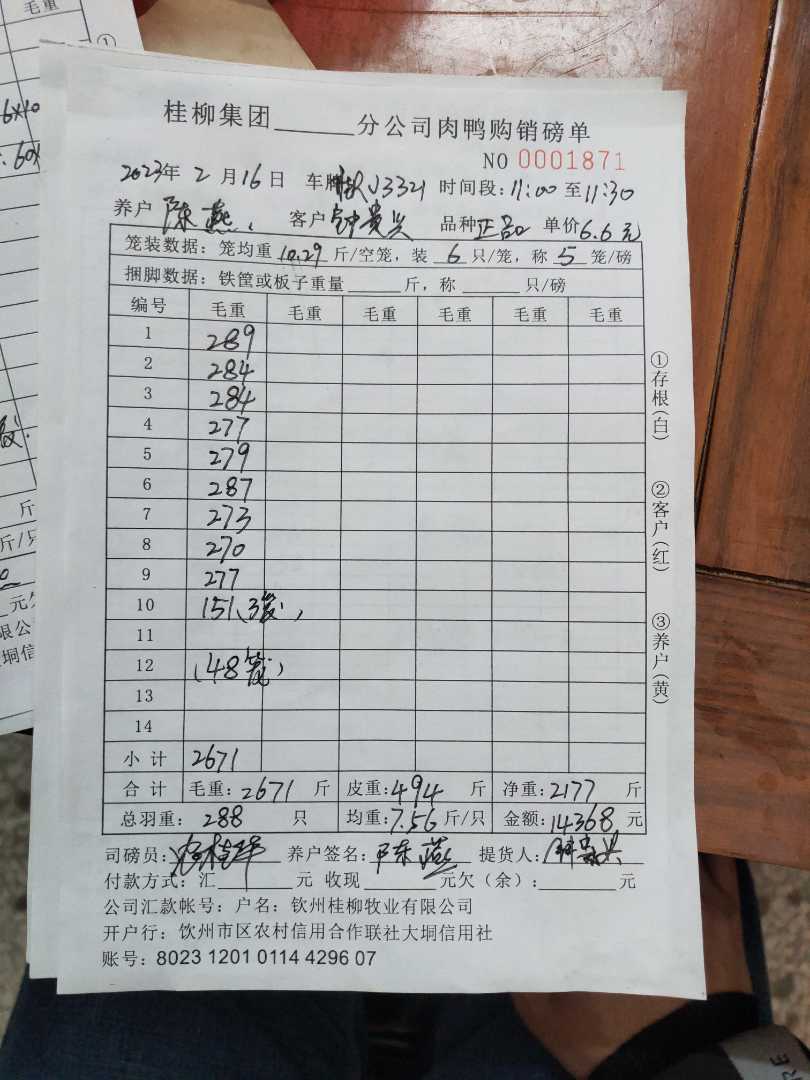 毛重
①
6×10
60×
斤
斤/只
元欠
限公
垌信
桂柳集团______分公司肉鸭购销磅单
NO 0001871
2023年 2 月 16 日 车牌 J3321 时间段: 11:00 至 11:30
养户 陈燕 客户 钟贵兴 品种 正品 单价 6.6 元
笼装数据: 笼均重 10.29 斤/空笼, 装 6 只/笼, 称 5 笼/磅
捆脚数据: 铁筐或板子重量______斤, 称______只/磅
编号 毛重 毛重 毛重 毛重 毛重 毛重
1 289
2 284
3 284
4 277
5 279
6 287
7 273
8 270
9 277
10 151(3笼)
11
12 (48笼)
13
14
小 计 2671
合 计 毛重: 2671 斤 皮重: 494 斤 净重: 2177 斤
总羽重: 288 只 均重: 7.56 斤/只 金额: 14368 元
司磅员: 养户签名: 陈燕 提货人: 钟贵兴
付款方式: 汇______元 收现______元欠(余):______元
公司汇款帐号: 户名: 钦州桂柳牧业有限公司
开户行: 饮州市区农村信用合作联社大垌信用社
账号: 8023 1201 0114 4296 07
①存根(白)
②客户(红)
③养户(黄)